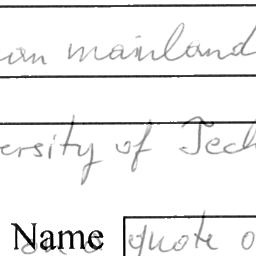 mainland
ersity of Tech
Name quote o